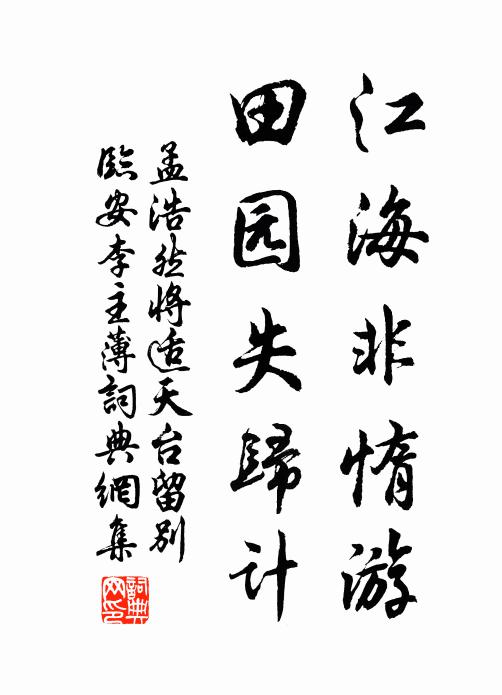 江海非惰游
田园失歸计
孟浩然将适天台留别
臨安李主薄詞典網集
詞典网印